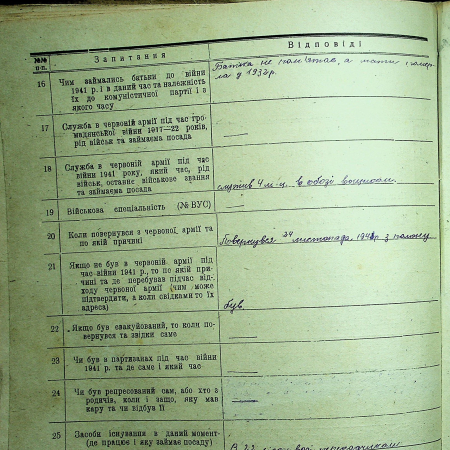 №№ п.п. Запитання Відповіді
16 Чим займались батьки до війни
1941 р. і в даний час та належність
їх до комуністичної партії і з
якого часу
Батька не пам'ятаю, а мати
у 193 р.
17 Служба в червоній армії під час гро-
мадянської війни 1917—22 років,
рід військ та займаєма посада
—
18 Служба в червоній армії під час
війни 1941 року, який час, рід
військ, останнє військове звання
та займаєма посада
служив 4 м-ц. в обозі
19 Військова спеціяльність (№ ВУС)
20 Коли повернувся з червоної армії та
по якій причині
Повернувся 24 листопада, 194 р з полону
21 Якщо не був в червоній армії під
час війни 1941 р., то по якій при-
чині та де перебував підчас від-
ходу червоної армії (чим може
підтвердити, а коли свідками то їх
адреса)
був.
22 Якщо був евакуйований, то коли по-
вернувся та звідки саме
—
23 Чи був в партизанах під час війни
1941 р. та де саме і який час
—
24 Чи був репресований сам, або хто з
родичів, коли і защо, яку мав
кару та чи відбув її
—
25 Засоби існування в даний момент
(де працює і яку займає посаду)
В